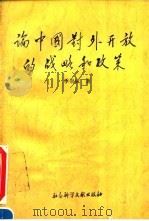 论中国对外开放
的战略和政策
社会科学文献出版社